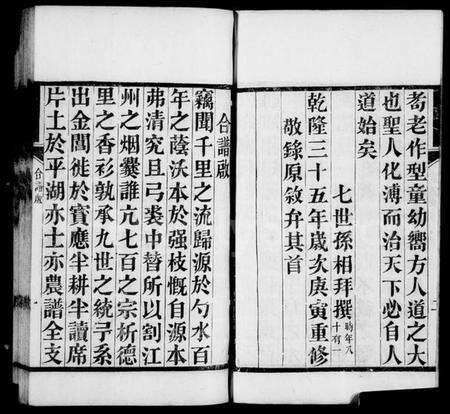 耈老作型童幼嚮方人道之大
也聖人化溥而治天下必自人
道始矣
七世孫相拜撰時年八十有一
乾隆三十五年歲次庚寅重修
敬錄原敘弁其首
合譜啟
竊聞千里之流歸源於勺水百
年之蔭沃本於强枝慨自源本
弗清究且弓裘中替所以割江
州之烟爨誰亢七百之宗析德
里之香衫孰承九世之統予系
出金閶徙於寳應半耕半讀席
片土於平湖亦士亦農譜全支
合譜啟
一